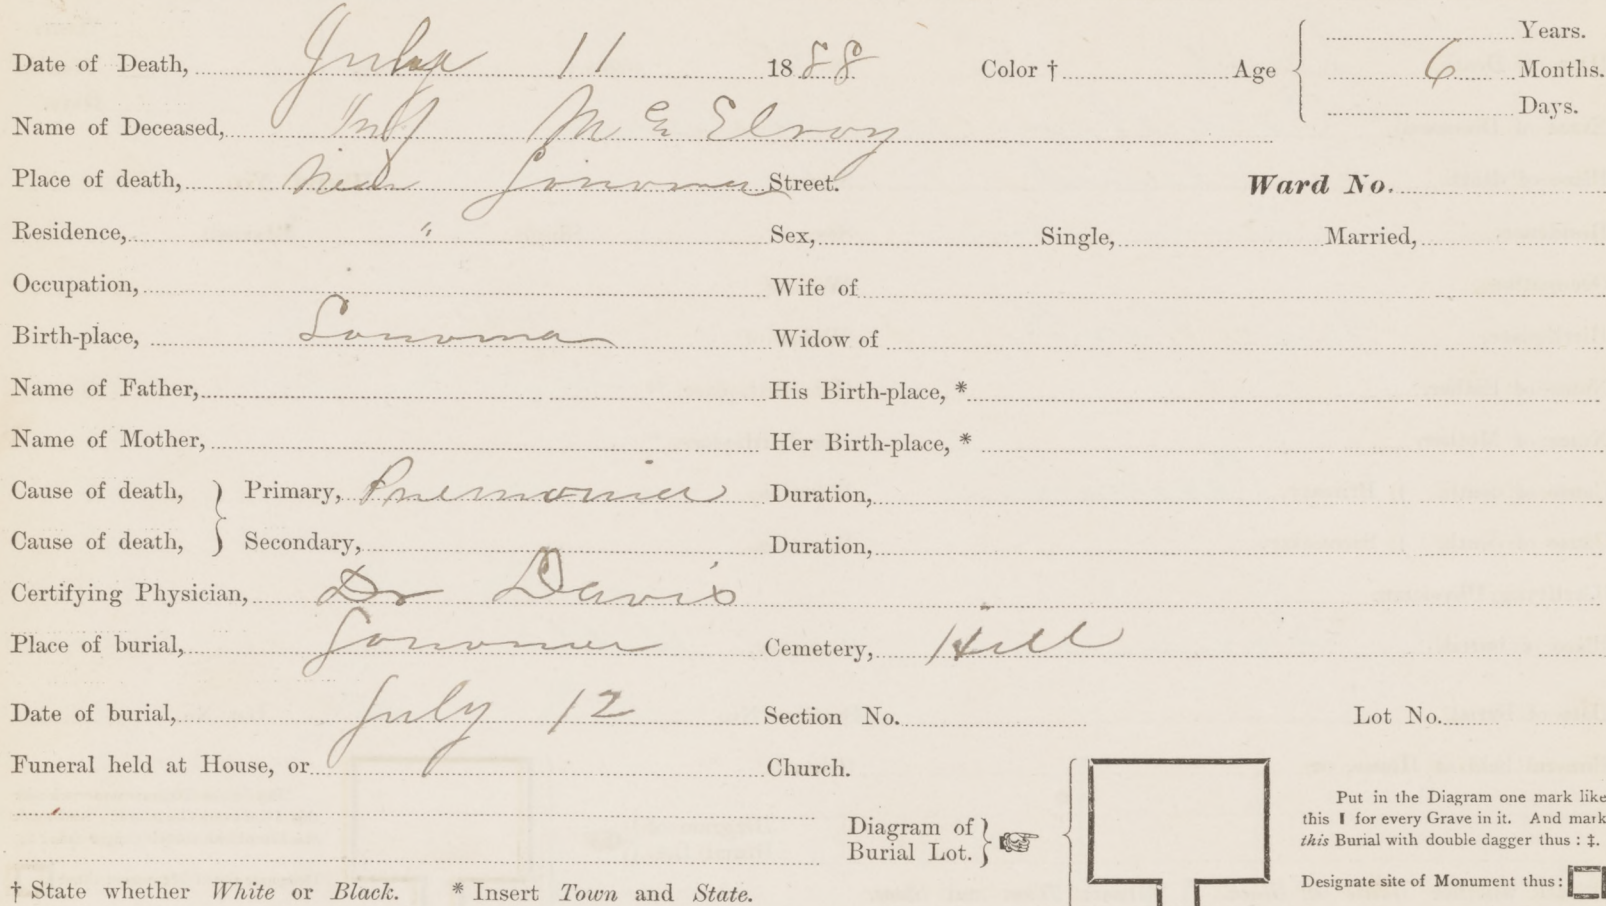 Date of Death, July 11 1888 Color † Age { Years.
6 Months.
Days.
Name of Deceased, Inf Mc Elroy
Place of death, Near Sonoma Street. Ward No.
Residence, " Sex, Single, Married,
Occupation, Wife of
Birth-place, Sonoma Widow of
Name of Father, His Birth-place, *
Name of Mother, Her Birth-place, *
Cause of death, } Primary, Pnemonia Duration,
Cause of death, } Secondary, Duration,
Certifying Physician, Dr Davis
Place of burial, Sonoma Cemetery, Hill
Date of burial, July 12 Section No. Lot No.
Funeral held at House, or Church.
Diagram of
Burial Lot. }
Put in the Diagram one mark like
this I for every Grave in it. And mark
this Burial with double dagger thus : ‡.
Designate site of Monument thus:
† State whether White or Black. * Insert Town and State.